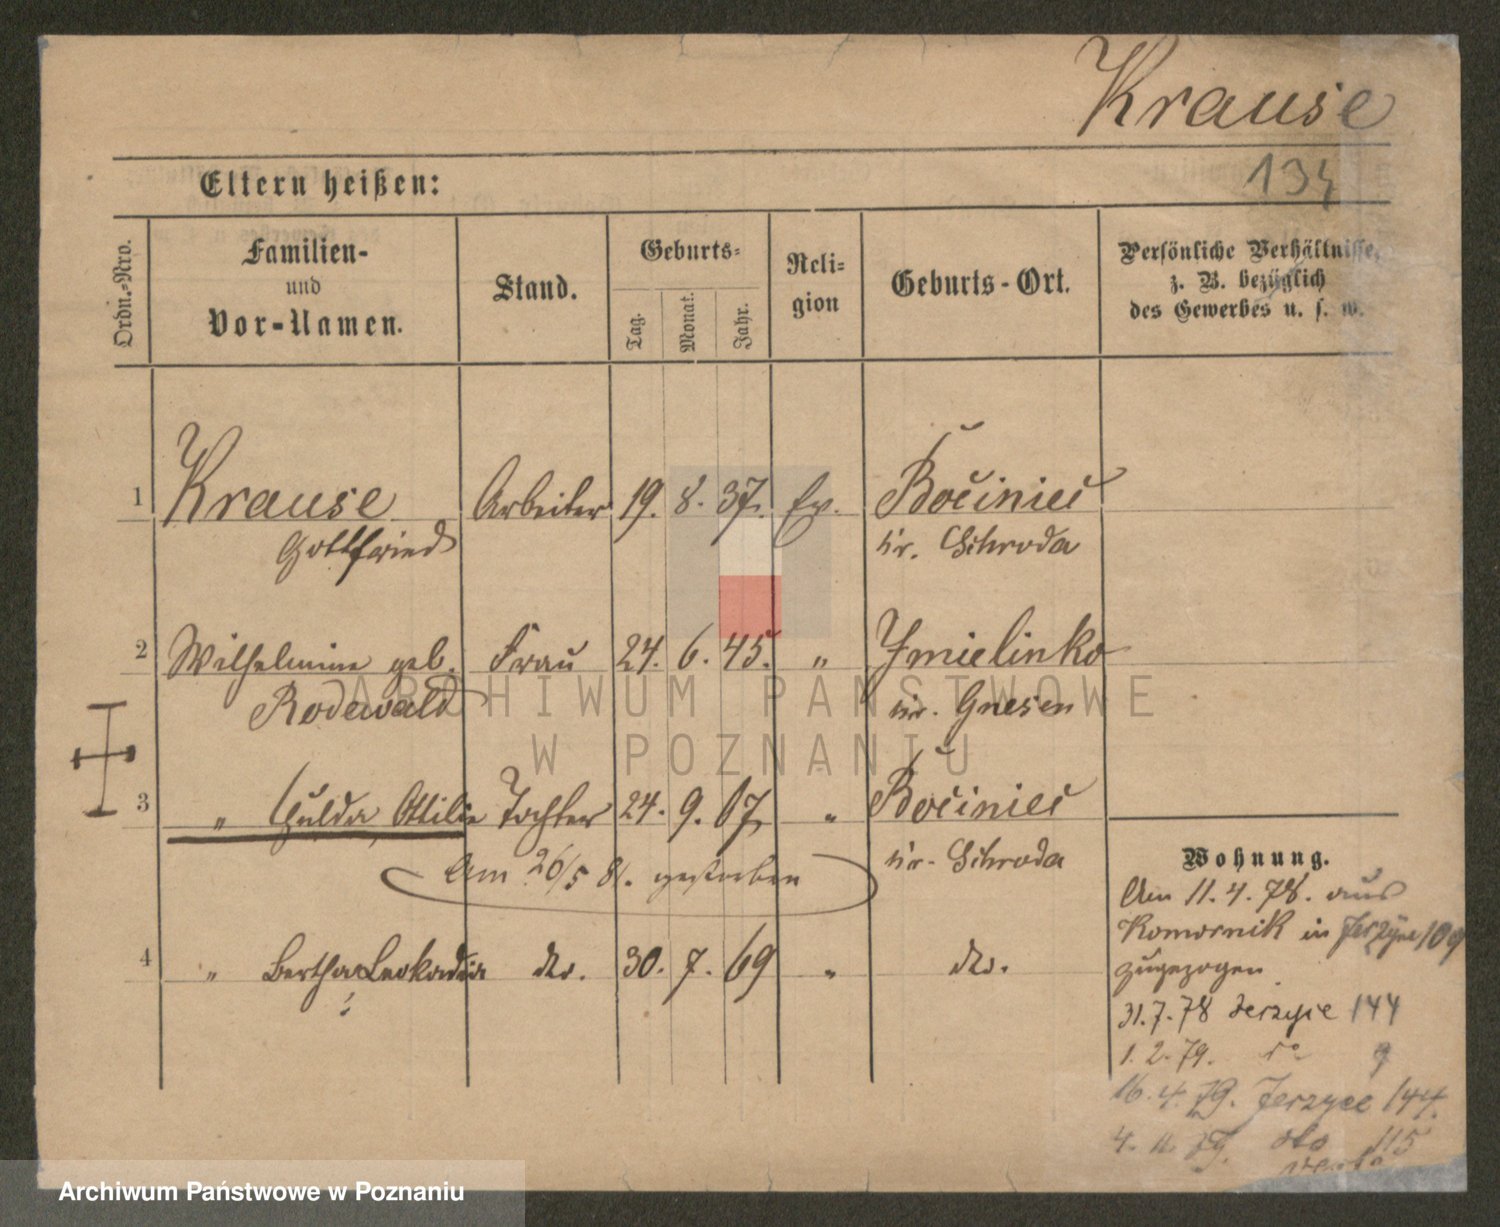 Krause
134
Eltern heißen:
Ordn.-Nro.
Familien-
und
Vor-Namen.
Stand.
Geburts-
Tag.
Monat.
Jahr.
Reli-
gion
Geburts-Ort.
Persönliche Verhältnisse,
z. B. bezüglich
des Gewerbes u. s. w.
1 Krause Arbeiter 19. 8. 37. Ev. Bočinieč
Gottfried Kr. Schroda
2 Wilhelmine geb. Frau 24. 6. 45. " Ymielinko
Rodewald Kr. Gnesen
3 " Hulda, Ottilie Tochter 24. 9. 67 " Bočinieč
Am 26/5 81. gestorben Kr. Schroda
4 " Bertha Leokadia do. 30. 7. 69 " do.
Wohnung.
Am 11. 4. 78. aus
Komornik in Jerzyce 109
zugezogen
31. 7. 78 Jerzyce 144
1. 2. 79. 9
16. 4. 79. Jerzyce 144.
4. 11. 79. dto 115
ARCHIWUM PAŃSTWOWE
W POZNANIU
Archiwum Państwowe w Poznaniu